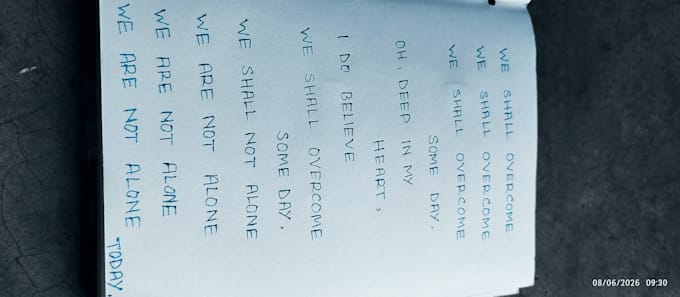 WE SHALL OVERCOME
WE SHALL OVERCOME
WE SHALL OVERCOME
SOME DAY.
OH, DEEP IN MY
HEART,
I DO BELIEVE
WE SHALL OVERCOME
SOME DAY.
WE SHALL NOT ALONE
WE ARE NOT ALONE
WE ARE NOT ALONE
WE ARE NOT ALONE
TODAY.
08/06/2026 09:30